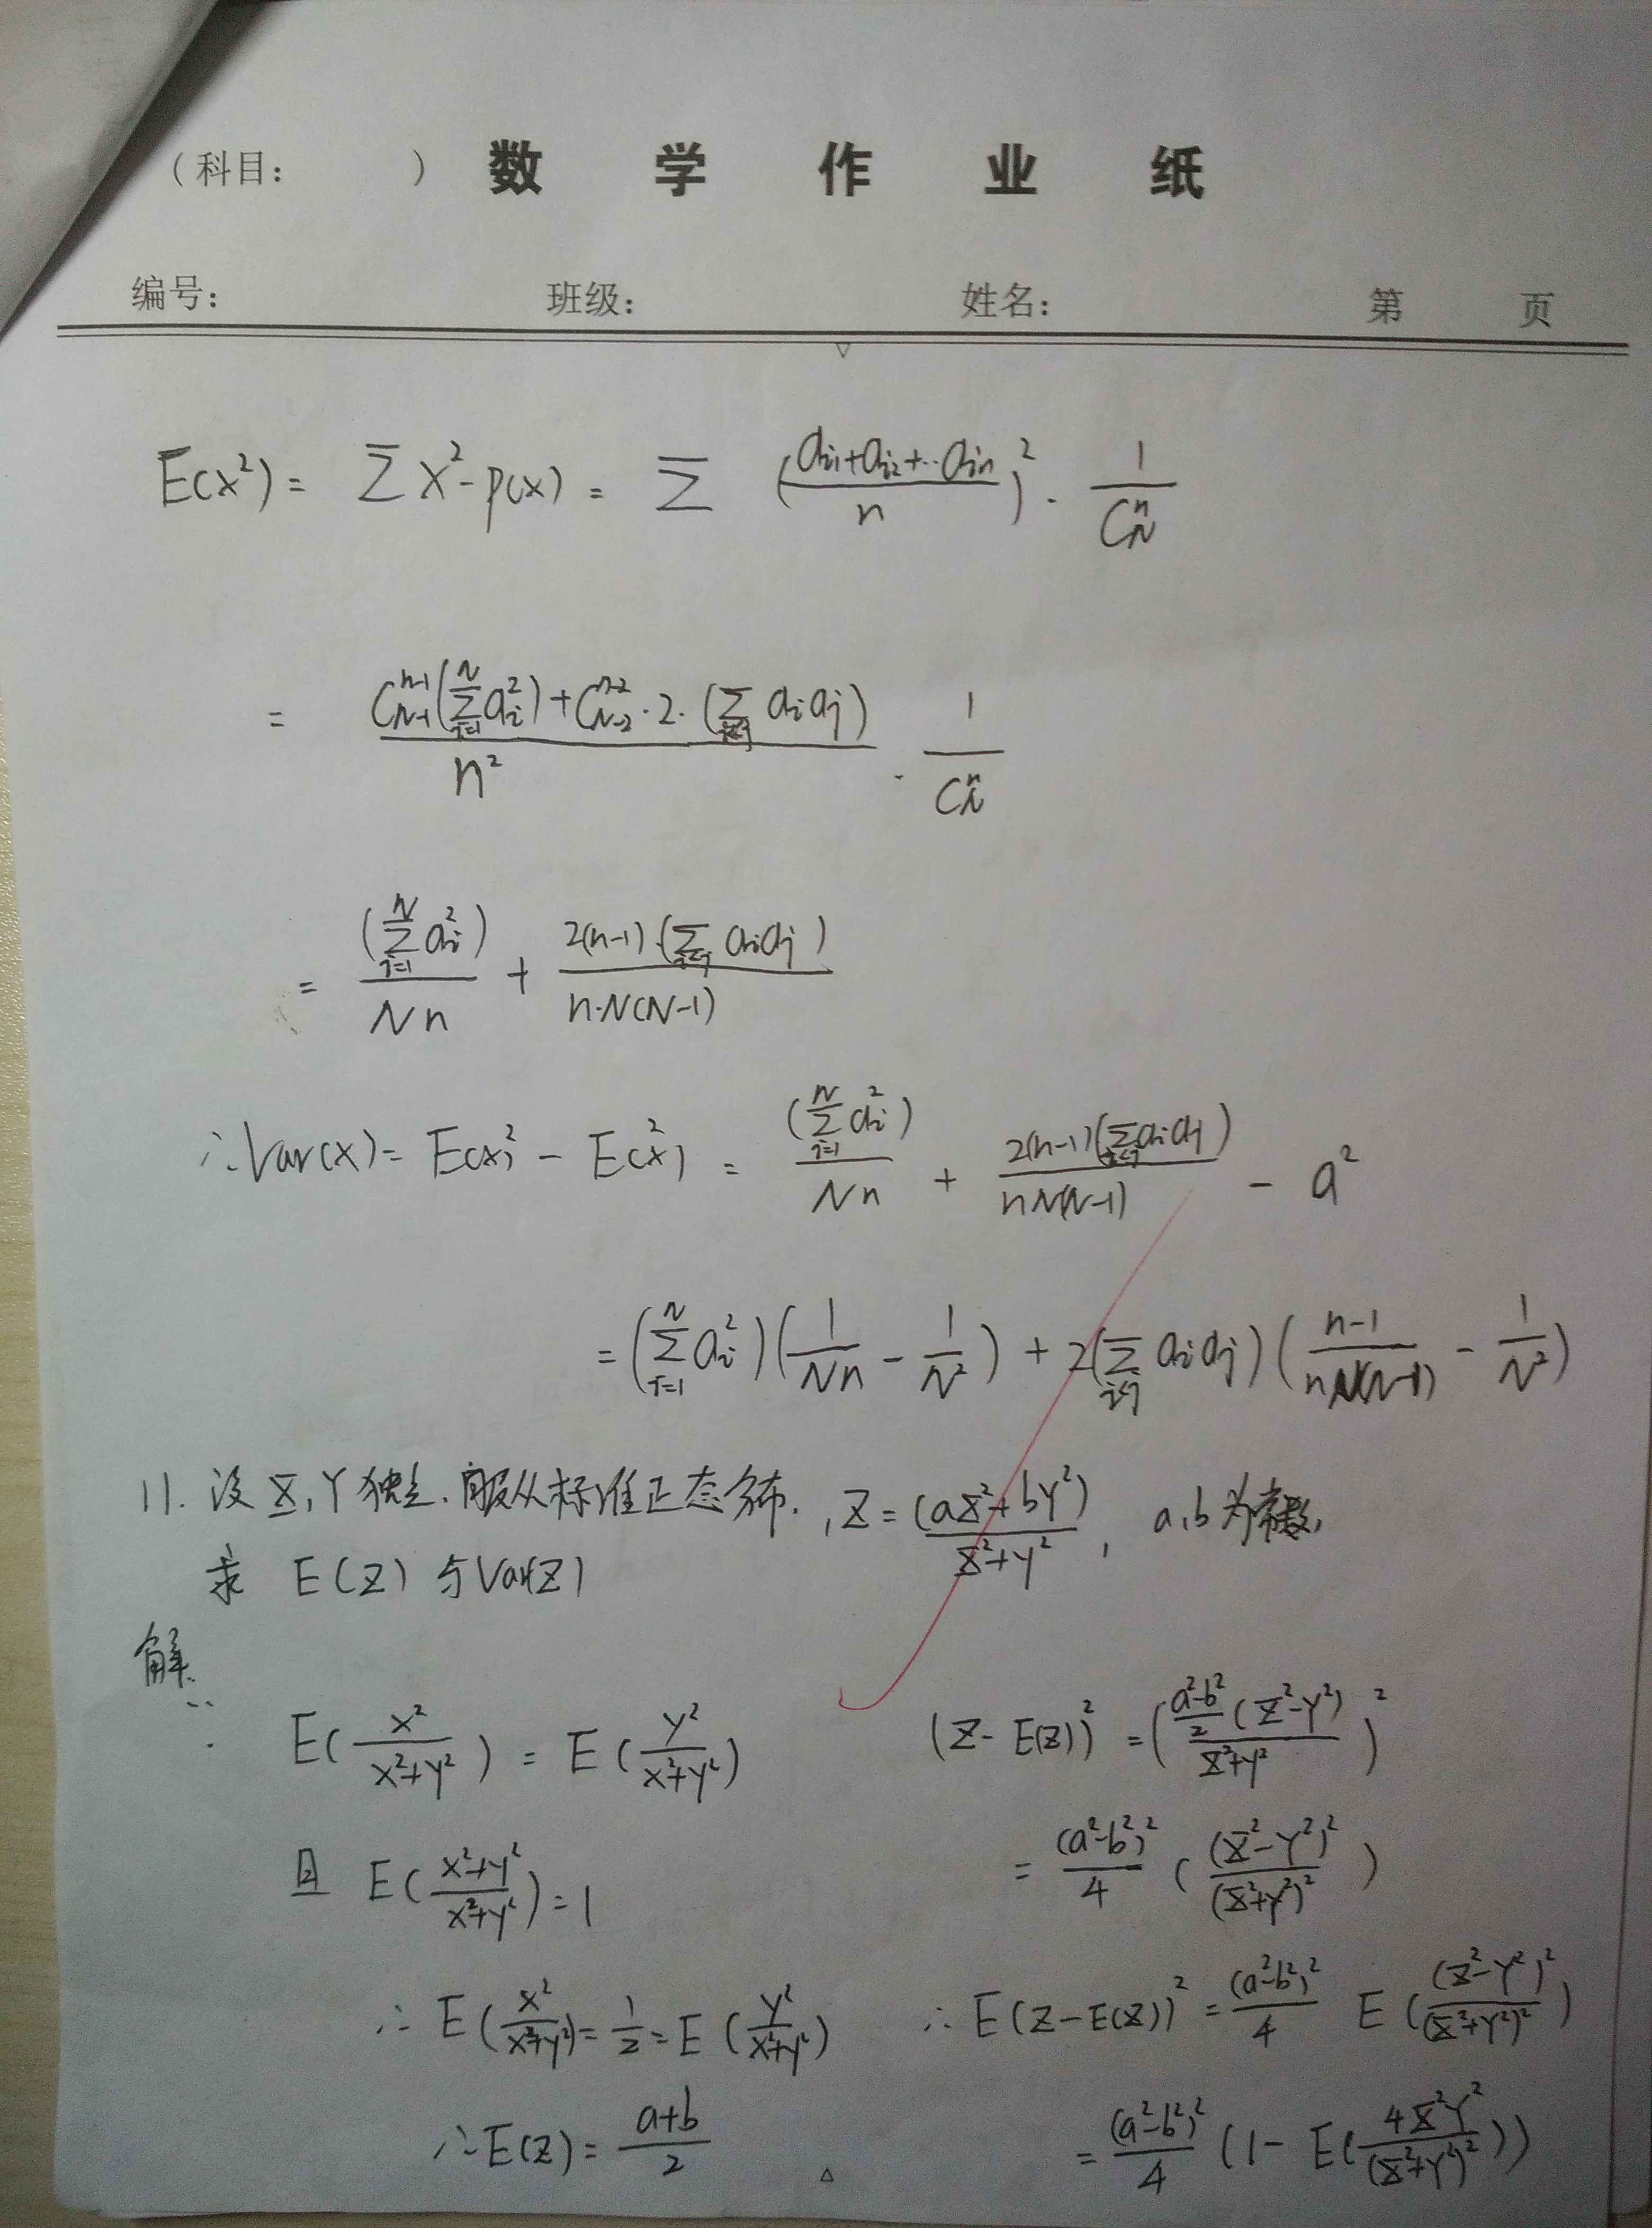 (科目: ) 数 学 作 业 纸
编号: 班级: 姓名: 第 页
E(x²) = Σ x²·p(x) = Σ ((a_{i1}+a_{i2}+··a_{in})/n)² · 1/C_N^n
= (C_{N-1}^{n-1}(Σ_{i=1}^N a_i²) + C_{N-2}^{n-2}·2·(Σ_{i<j} a_i a_j))/n² · 1/C_N^n
= (Σ_{i=1}^N a_i²)/(Nn) + 2(n-1)·(Σ_{i<j} a_i a_j)/(n·N(N-1))
∴ Var(x) = E(x)² - E(x²) = (Σ_{i=1}^N a_i²)/(Nn) + 2(n-1)(Σ_{i<j} a_i a_j)/(nN(N-1)) - a²
= (Σ_{i=1}^N a_i²)(1/(Nn) - 1/N²) + 2(Σ_{i<j} a_i a_j)((n-1)/(nN(N-1)) - 1/N²)
11. 设 X, Y 独立, 服从标准正态分布, Z = (aX²+bY²)/(X²+Y²), a, b 为常数,
求 E(Z) 与 Var(Z)
解:
∵ E(x²/(x²+y²)) = E(y²/(x²+y²))
且 E((x²+y²)/(x²+y²)) = 1
∴ E(x²/(x²+y²)) = 1/2 = E(y²/(x²+y²))
∴ E(Z) = (a+b)/2
(Z-E(Z))² = ((a²-b²)/2 (X²-Y²)/(X²+Y²))²
= (a²-b²)²/4 ((X²-Y²)²/(X²+Y²)²)
∴ E(Z-E(Z))² = (a²-b²)²/4 E((X²-Y²)²/(X²+Y²)²)
= (a²-b²)²/4 (1 - E(4X²Y²/(X²+Y²)²))